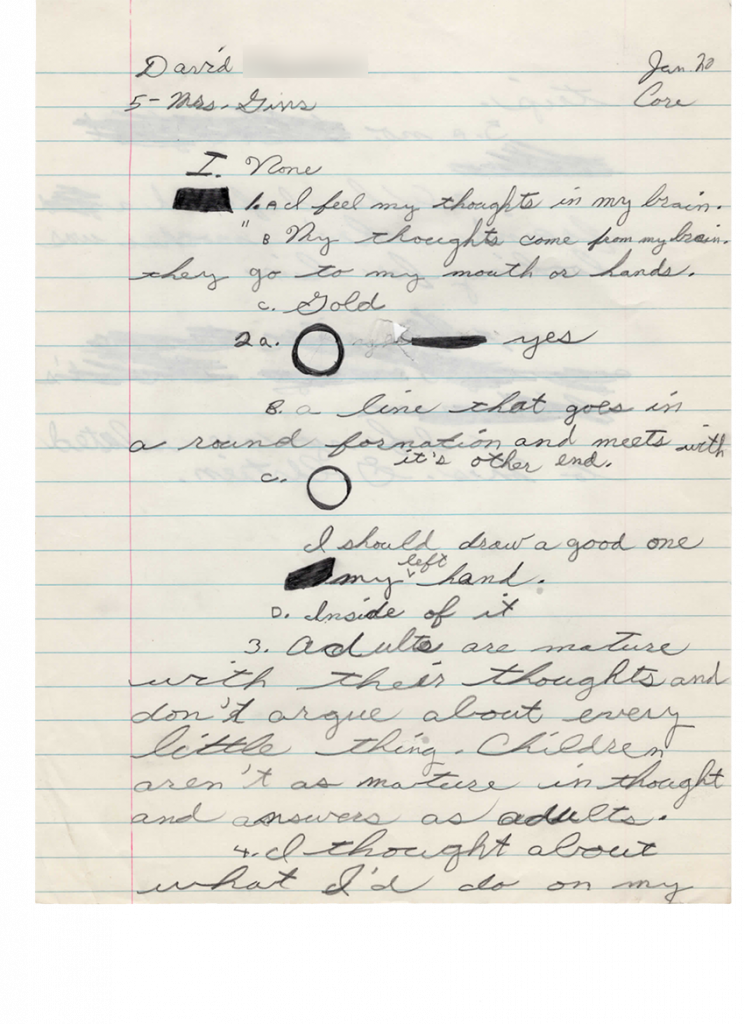 David
Jan. 20
5- Mrs. Gins
Core
I. None
1. A I feel my thoughts in my brain.
" B My thoughts come from my brain.
they go to my mouth or hands.
c. Gold
2a. yes
B. a line that goes in
a round formation and meets with
it's other end.
c.
I should draw a good one
my left hand.
D. Inside of it
3. Adults are mature
with their thoughts and
don't argue about every
little thing. Children
aren't as mature in thought
and answers as adults.
4. I thought about
what I'd do on my